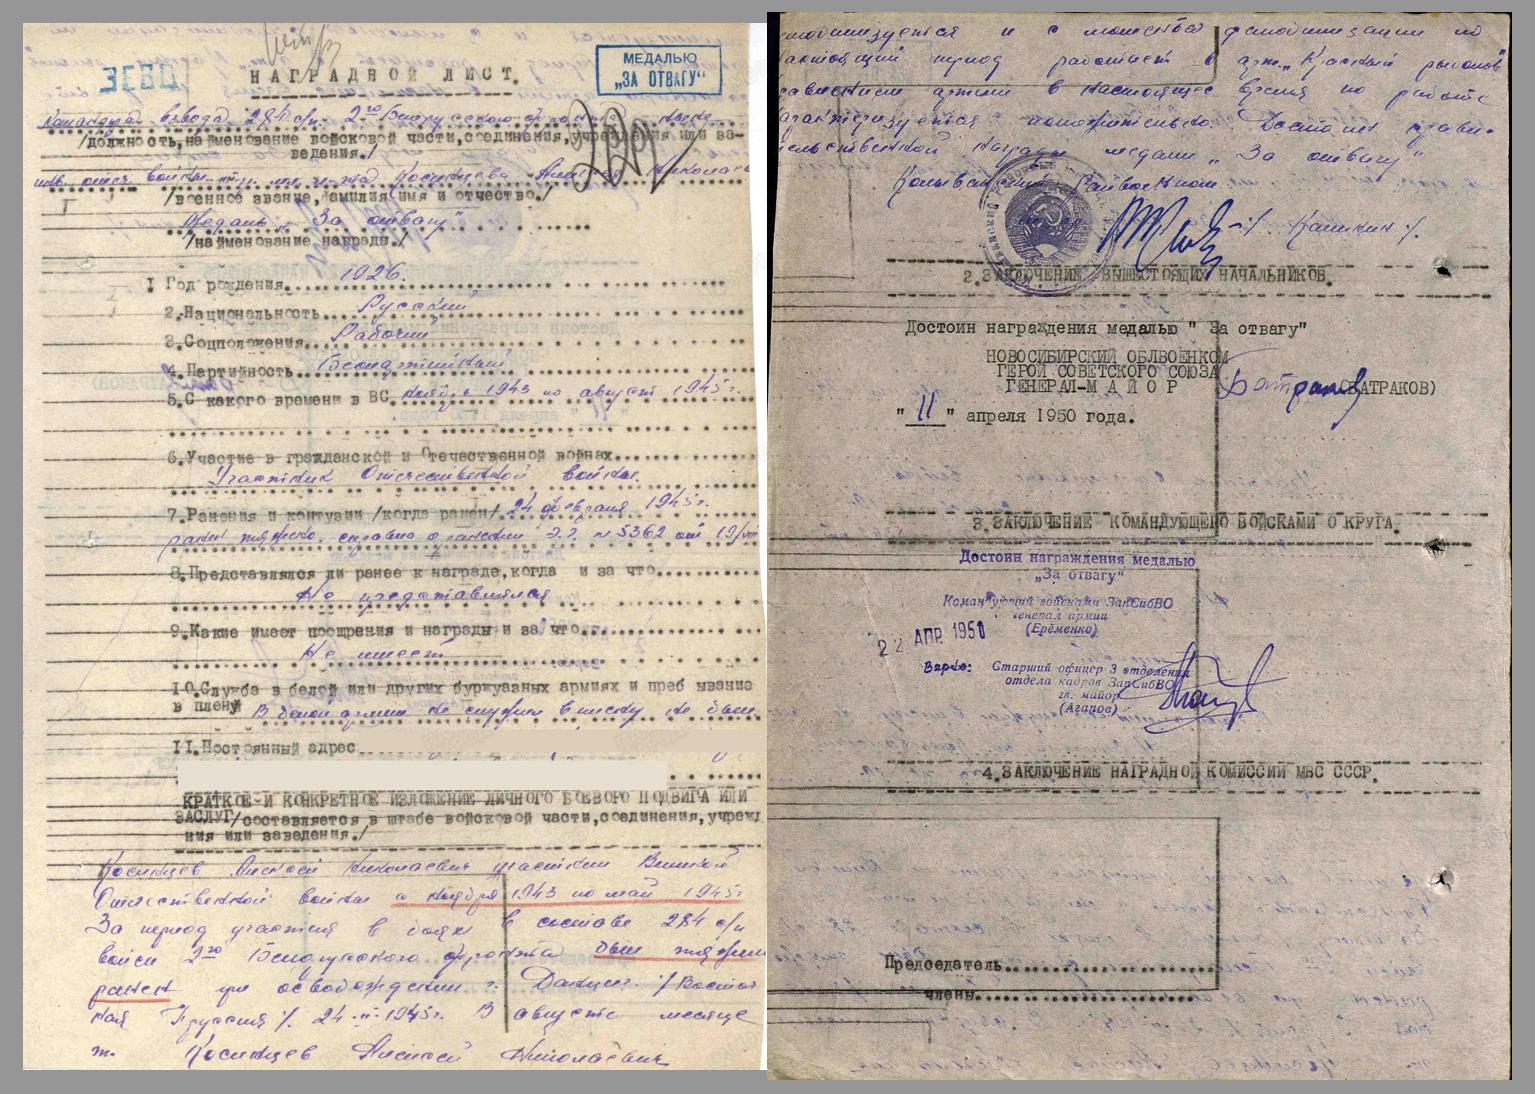 ЗСВО
НАГРАДНОЙ ЛИСТ.
МЕДАЛЬЮ
„ЗА ОТВАГУ“
Командира взвода 284 с/п. 2го Белорусского фронта
/должность, наименование войсковой части, соединения, учреждения или за-
ведения./
Косинцева Николаев
/военное звание, фамилия имя и отчество./
Медаль „За отвагу“
/наименование награды./
I Год рождения 1926
2. Национальность Русский
3. Соцположения Рабочий
4. Партийность Беспартийный
5. С какого времени в ВС ноябрь 1943 по август 1945 г.
6. Участие в гражданской и Отечественной войнах
Участник Отечественной войны.
7. Ранения и контузии /когда ранен/ 24 февраля 1945 г.
ранен тяжело. справка о ранении № 5362 от 19/VIII
8. Представлялся ли ранее к награде, когда и за что
Не представлялся
9. Какие имеет поощрения и награды и за что
Не имеет
10. Служба в белой или других буржуазных армиях и пребывание
в плену В белой армии не служил в плену не был
II. Постоянный адрес
КРАТКОЕ И КОНКРЕТНОЕ ИЗЛОЖЕНИЕ ЛИЧНОГО БОЕВОГО ПОДВИГА ИЛИ
ЗАСЛУГ /составляется в штабе войсковой части, соединения, учрежд
ния или заведения./
Косинцев Алексей Николаевич участник Великой
Отечественной войны с ноября 1943 по май 1945 г
За период участия в боях в составе 284 с/п
войск 2го Белорусского фронта был тяжело
ранен при освобождении г. Данциг. /Восточ
ная Пруссия/. 24.II.1945 г. В августе месяце
т. Косинцев Алексей Николаевич
демобилизуется и с момента демобилизации по
настоящий период работает в арт. „Красный рыболов“
в настоящее время по работе
характеризуется положительно. Достоин прави-
тельственной награды медали „За отвагу“
Колыванский Райвоенком
/Калинин/.
2. ЗАКЛЮЧЕНИЕ ВЫШЕСТОЯЩИХ НАЧАЛЬНИКОВ.
Достоин награждения медалью " За отвагу"
НОВОСИБИРСКИЙ ОБЛВОЕНКОМ
ГЕРОЙ СОВЕТСКОГО СОЮЗА
ГЕНЕРАЛ-МАЙОР Батраков (БАТРАКОВ)
" 11 " апреля 1950 года.
3. ЗАКЛЮЧЕНИЕ КОМАНДУЮЩЕГО ВОЙСКАМИ ОКРУГА.
Достоин награждения медалью
„За отвагу“
Командующий войсками ЗапСибВО
генерал армии
(Ерёменко)
22 АПР 1950
Верно: Старший офицер 3 отделения
отдела кадров ЗапСибВО
гв. майор
(Агапов)
4. ЗАКЛЮЧЕНИЕ НАГРАДНОЙ КОМИССИИ МВС СССР.
Председатель
члены